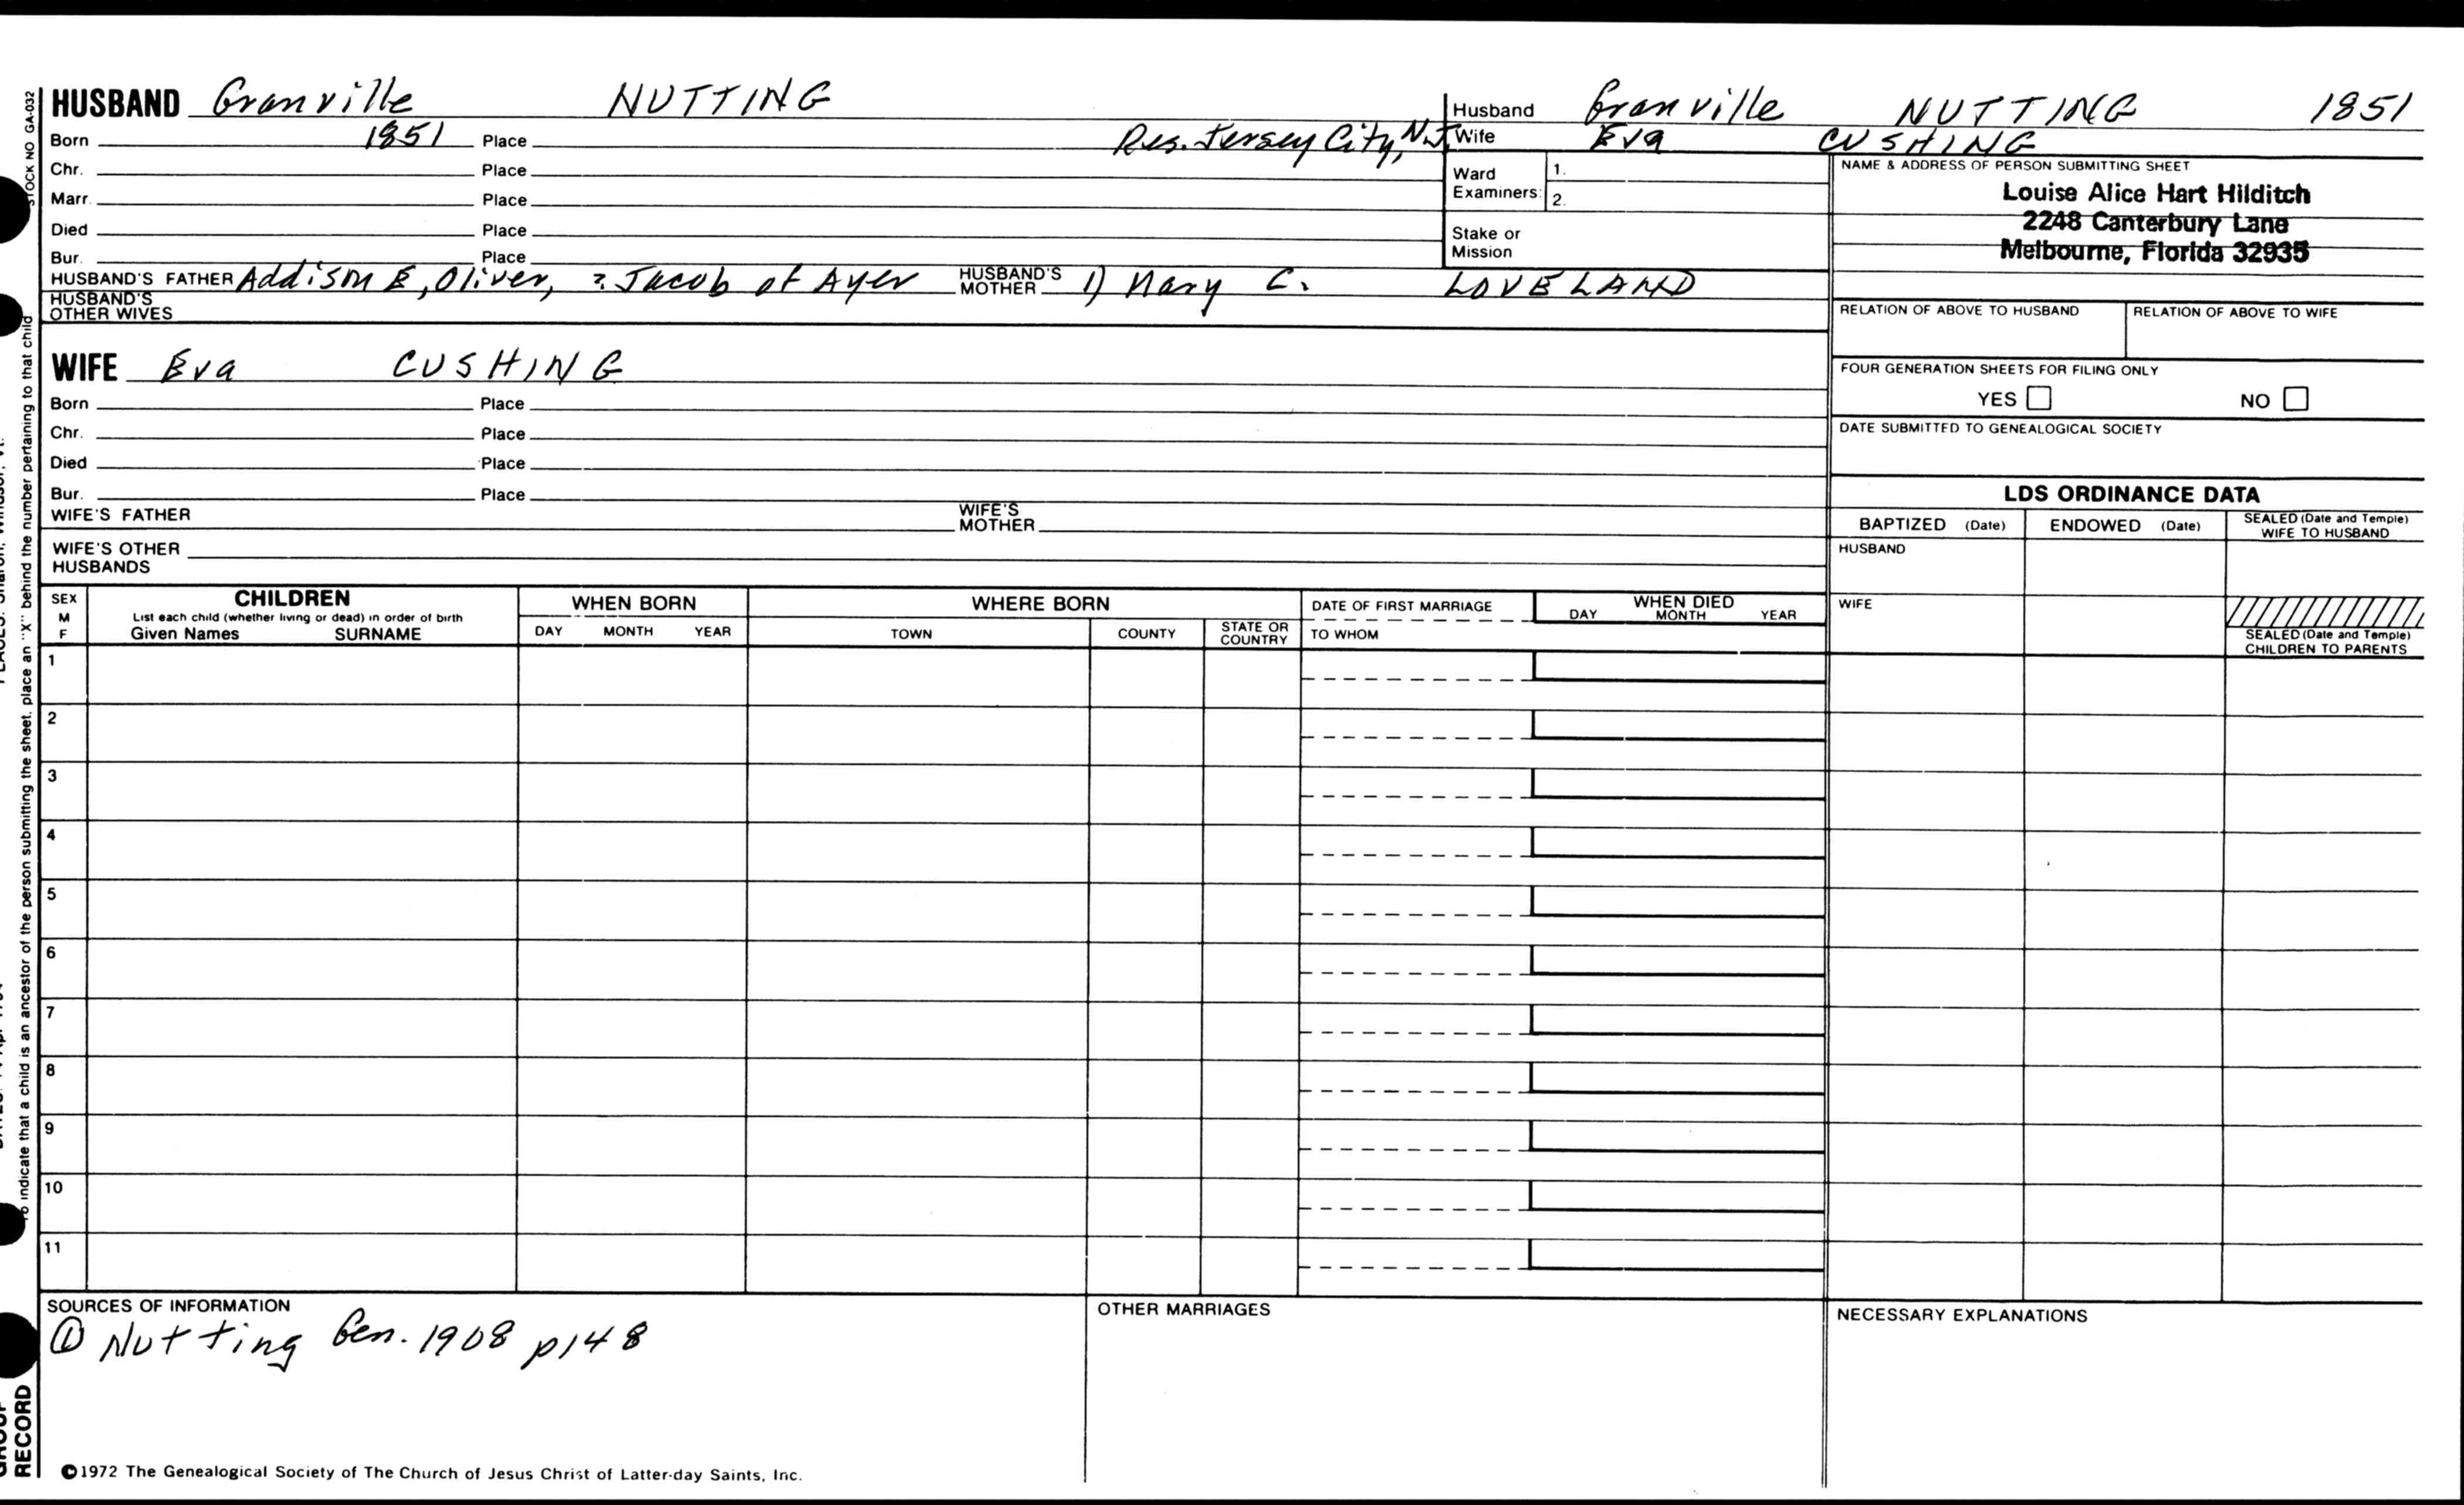 STOCK NO GA-032
HUSBAND Granville NUTTING
Born 1851 Place Res. Jersey City, N.J.
Chr. Place
Marr. Place
Died Place
Bur. Place
HUSBAND'S FATHER Addison E, Oliver, ? Jacob of Ayer HUSBAND'S MOTHER 1) Mary C. LOVELAND
HUSBAND'S OTHER WIVES
WIFE Eva CUSHING
Born Place
Chr. Place
Died Place
Bur. Place
WIFE'S FATHER WIFE'S MOTHER
WIFE'S OTHER HUSBANDS
Husband Granville NUTTING 1851
Wife Eva CUSHING
Ward Examiners: 1.
2.
Stake or Mission
NAME & ADDRESS OF PERSON SUBMITTING SHEET
Louise Alice Hart Hilditch
2248 Canterbury Lane
Melbourne, Florida 32935
RELATION OF ABOVE TO HUSBAND RELATION OF ABOVE TO WIFE
FOUR GENERATION SHEETS FOR FILING ONLY
YES NO
DATE SUBMITTED TO GENEALOGICAL SOCIETY
LDS ORDINANCE DATA
BAPTIZED (Date) ENDOWED (Date) SEALED (Date and Temple) WIFE TO HUSBAND
HUSBAND
WIFE
SEALED (Date and Temple)
CHILDREN TO PARENTS
SEX M F
CHILDREN
List each child (whether living or dead) in order of birth
Given Names SURNAME
WHEN BORN
DAY MONTH YEAR
WHERE BORN
TOWN COUNTY STATE OR COUNTRY
DATE OF FIRST MARRIAGE
TO WHOM
WHEN DIED
DAY MONTH YEAR
1
2
3
4
5
6
7
8
9
10
11
SOURCES OF INFORMATION
① Nutting Gen. 1908 p148
OTHER MARRIAGES
NECESSARY EXPLANATIONS
©1972 The Genealogical Society of The Church of Jesus Christ of Latter-day Saints, Inc.
To indicate that a child is an ancestor of the person submitting the sheet, place an "X" behind the number pertaining to that child
GROUP
RECORD